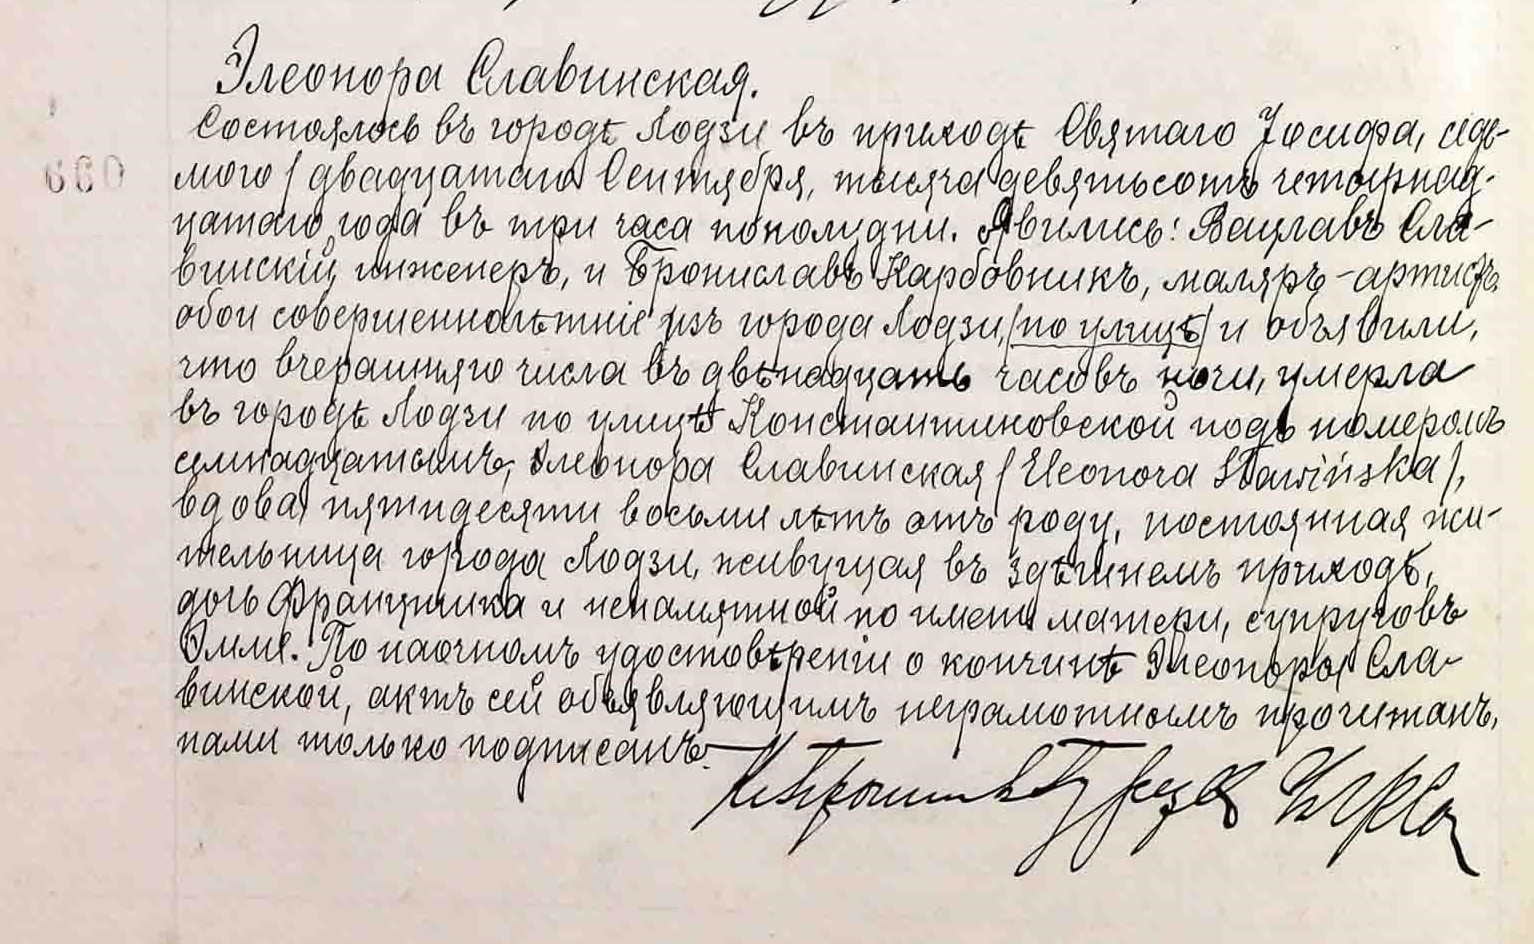 Элеонора Славинская.
Состоялось въ городѣ Лодзи въ приходѣ Святаго Іосифа, седь-
660
мого / двадцатаго Сентября, тысяча девятьсотъ четырнад-
цатаго года въ три часа пополудни. Явились: Вацлавъ Сла-
винскій, инженеръ, и Брониславъ Карбовникъ, маляръ-артистъ,
обои совершеннолѣтніе изъ города Лодзи, /по улицѣ/ и объявили,
что вчерашняго числа въ двѣнадцать часовъ ночи, умерла
въ городѣ Лодзи по улицѣ Константиновской подъ номеромъ
семнадцатымъ, Элеонора Славинская / Eleonora Sławińska /,
вдова, пятидесяти восьми лѣтъ отъ роду, постоянная жи-
тельница города Лодзи, живущая въ здѣшнемъ приходѣ,
дочь Францишка и непамятной по имени матери, супруговъ
Эмме. По наочномъ удостовѣреніи о кончинѣ Элеоноры Сла-
винской, актъ сей объявляющимъ неграмотнымъ прочитанъ,
нами только подписанъ.